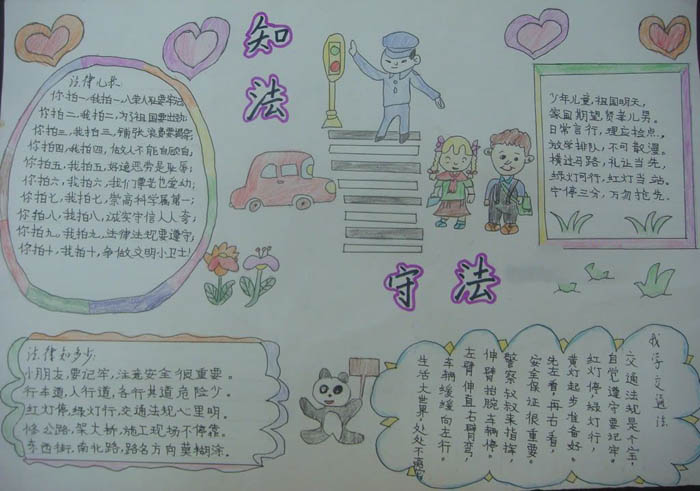 知法
守法
法律儿歌
你拍一,我拍一,八荣八耻要牢记
你拍二,我拍二,为了祖国要出力
你拍三,我拍三,铺张浪费要揭穿
你拍四,我拍四,做人不能自顾自;
你拍五,我拍五,好逸恶劳是耻辱;
你拍六,我拍六,我们要老也爱幼;
你拍七,我拍七,崇高科学属第一;
你拍八,我拍八,诚实守信人人夸;
你拍九,我拍九,法律法规要遵守;
你拍十,我拍十,争做文明小卫士!
少年儿童,祖国明天,
家国期望,贤孝儿男。
日常言行,理应检点,
放学排队,不可散漫。
横过马路,礼让当先,
绿灯可行,红灯当站。
宁停三分,万勿抢先.
法律知多少:
小朋友,要记牢,注意安全很重要。
行车道,人行道,各行其道危险少。
红灯停,绿灯行,交通法规心里明。
修公路,架大桥,施工现场不停靠。
东西街.南北路,路名方向莫糊涂.
我学交通法
交通法规是个宝,
自觉遵守要记牢。
红灯停,绿灯行,
黄灯起步准备好。
先左看,再右看,
安全保证很重要。
警察叔叔来指挥,
伸臂抬腕车辆停。
左臂伸直右臂弯,
车辆缓缓向左行。
生活大世界,处处不离它